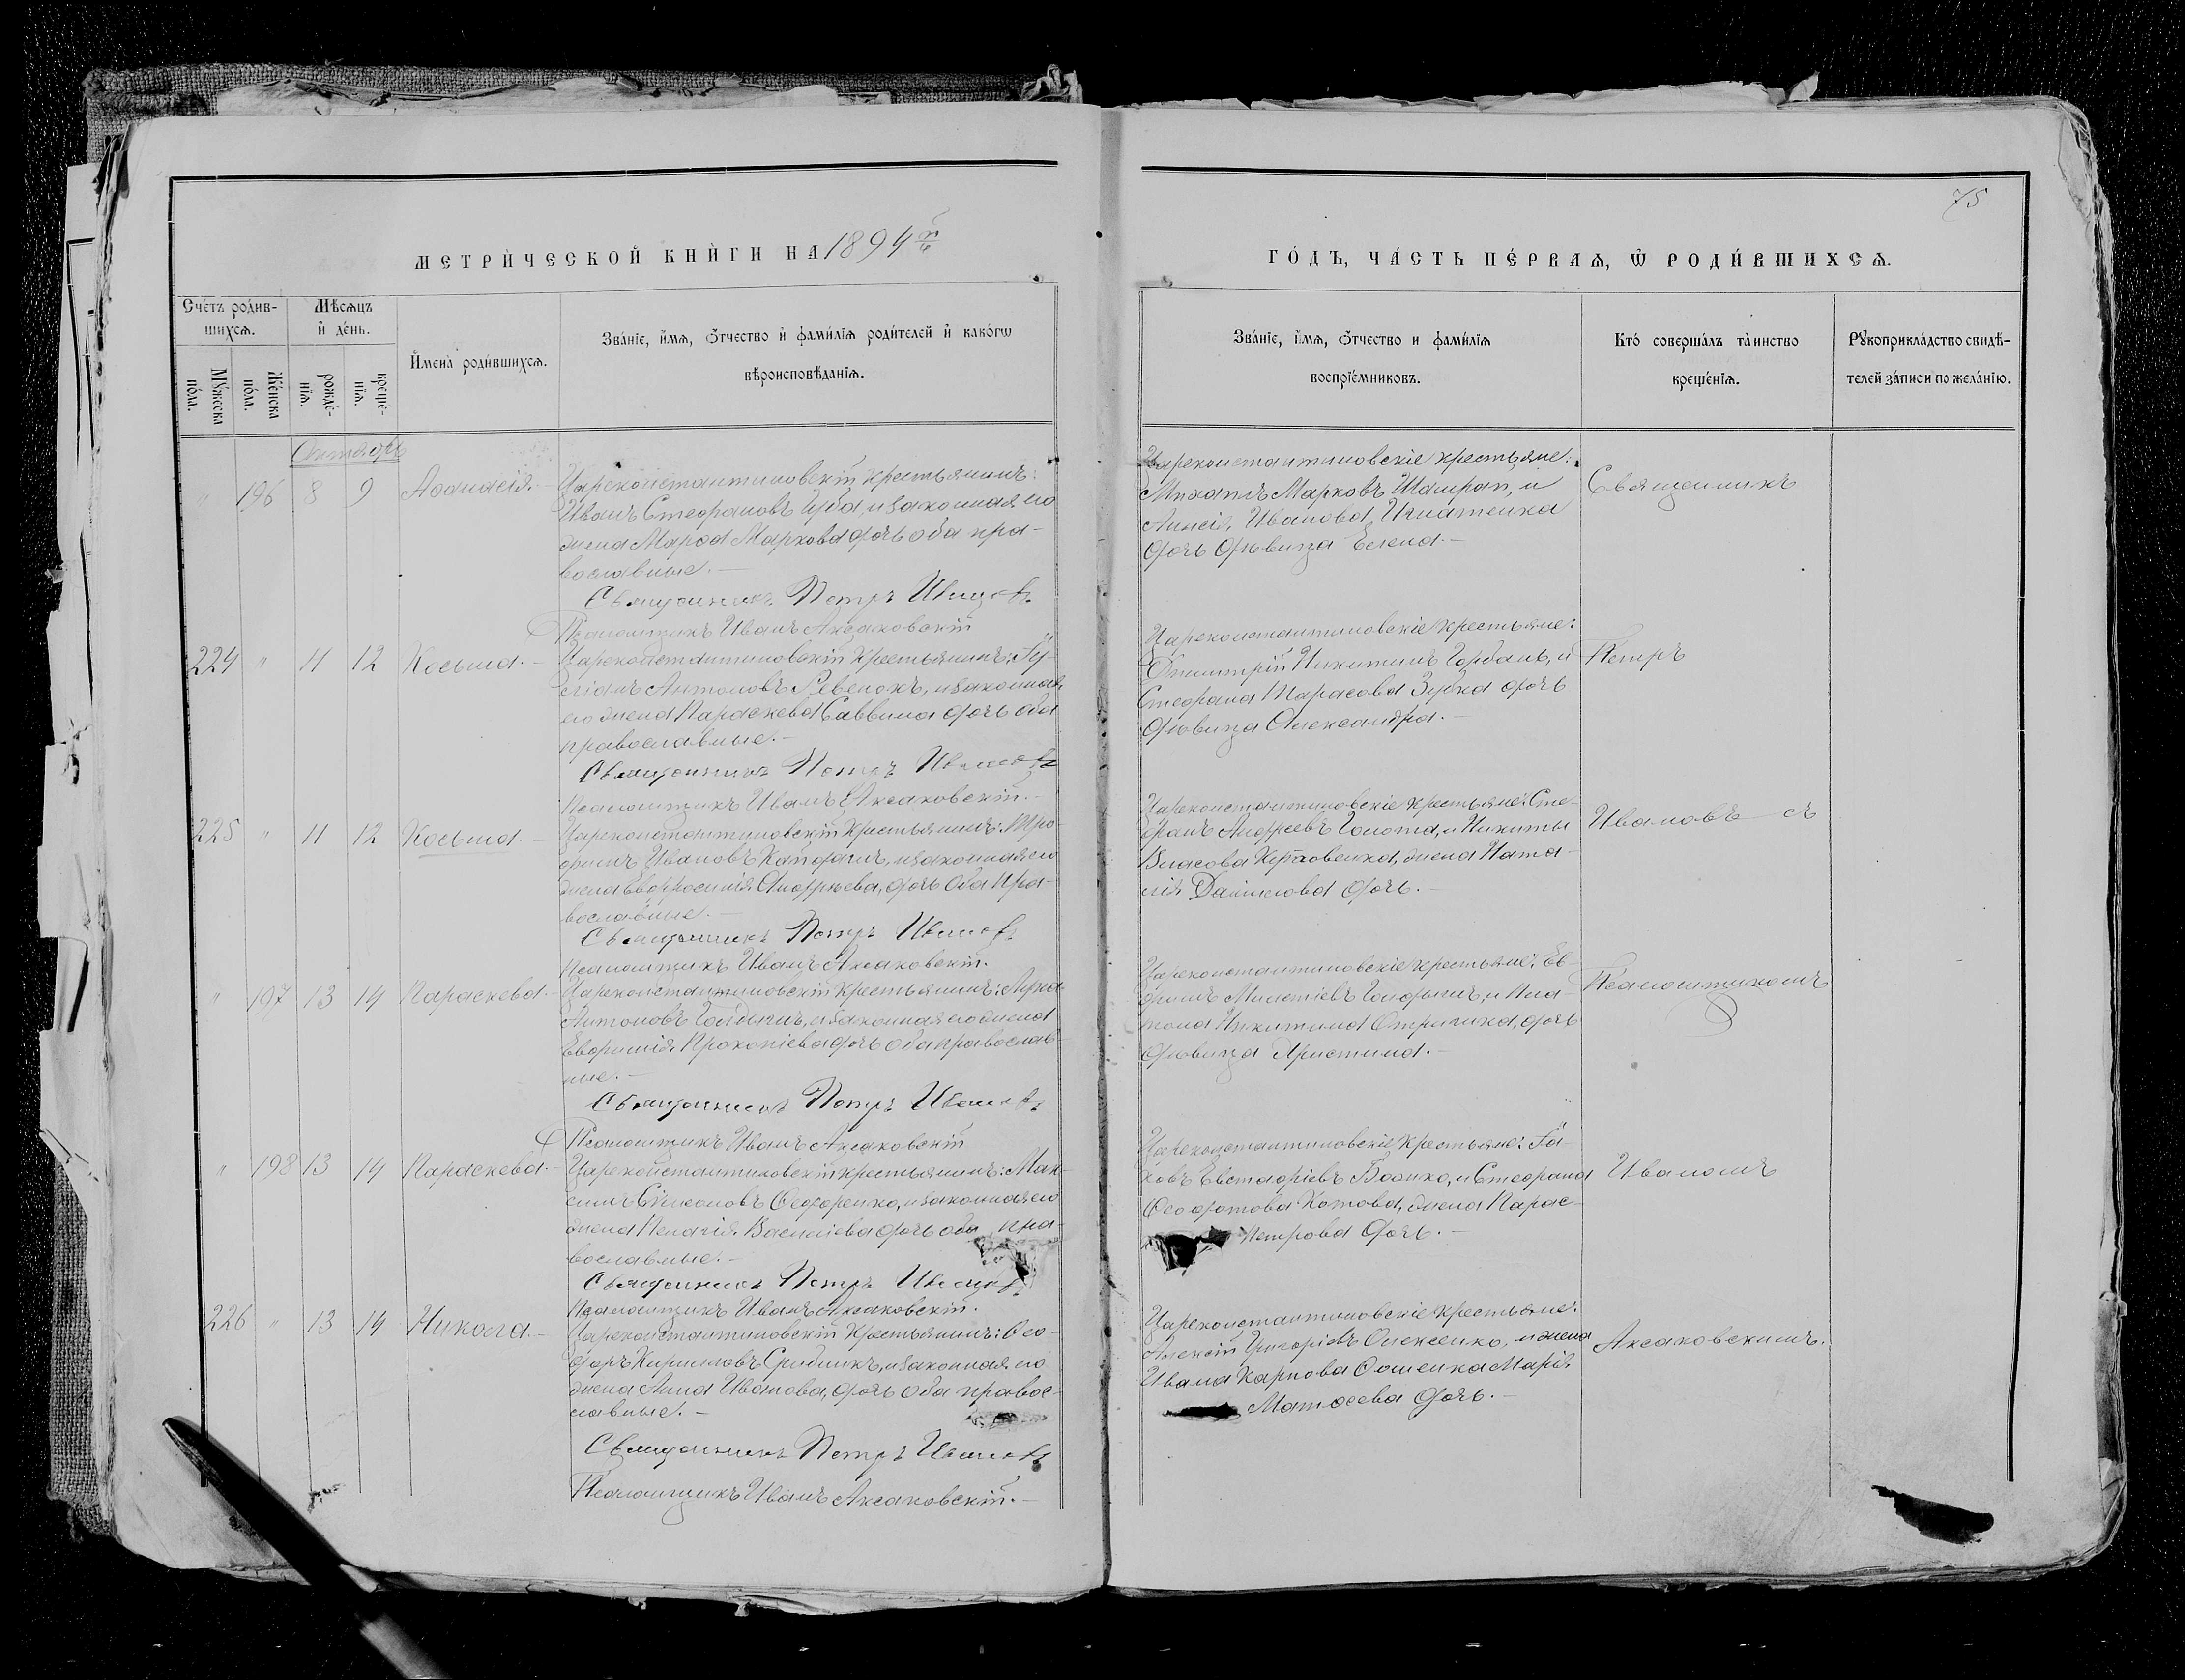 75
МЕТРИ́ЧЕСКОЙ КНИ́ГИ НА 1894 й
ГО́ДЪ, ЧА́СТЬ ПЕ́РВАѦ, Ѡ҆ РОДИ́ВШИХСѦ.
Сче́тъ роди́в-
шихсѧ.
Мꙋ́жеска
по́ла.
Же́нска
по́ла.
Мѣ́сѧцъ
и҆ де́нь.
рожде́-
нїѧ.
креще́-
нїѧ.
И҆мена̀ роди́вшихсѧ.
Зва́нїе, и҆́мѧ, ѻ҆́тчество и҆ фами́лїѧ роди́телей и҆ како́гѡ
вѣроисповѣ́данїѧ.
Зва́нїе, и҆́мѧ, ѻ҆́тчество и фами́лїѧ
воспрїе́мниковъ.
Кто́ соверша́лъ та̀инство
креще́нїѧ.
Рꙋкоприкла́дство свидѣ́-
телей за́писи по жела́нїю.
Октябрь
" 196 8 9 Аѳанасія.
Цареконстантиновскій крестьянинъ:
Иванъ Стефановъ Цуба, и законная его
жена Марѳа Маркова дочь оба пра-
вославные.
Священникъ Петръ Ивановъ
Псаломщикъ Иванъ Аксаковскій
Цареконстантиновскіе крестьяне:
Михаилъ Марковъ Шапран, и
Алексія Иванова Игнатенка
дочь дѣвица Елена.
Священникъ
224 " 11 12 Косьма.
Цареконстантиновскій крестьянинъ: Іу-
ліанъ Антоновъ Ревенокъ, и законная
его жена Параскева Саввина дочь оба
православные.
Священникъ Петръ Ивановъ
Псаломщикъ Иванъ Аксаковскій.
Цареконстантиновскіе крестьяне:
Димитрій Никитинъ Горбань, и
Стефана Тарасова Зубка дочь
дѣвица Александра.
Петръ
225 " 11 12 Косьма.
Цареконстантиновскій крестьянинъ: Тро-
фимъ Ивановъ и законная его
жена Евфросинія Андреева, дочь оба пра-
вославные.
Священникъ Петръ Ивановъ
Псаломщикъ Иванъ Аксаковскій.
Цареконстантиновскіе крестьяне: Сте-
фанъ Андреевъ Голота, и Никиты
Власова жена Ната-
лія Даніилова дочь.
Ивановъ съ
" 197 13 14 Параскева.
Цареконстантиновскій крестьянинъ: Лука
Антоновъ и законная его жена
Евфимія Прокопіева дочь оба православ-
ные.
Священникъ Петръ Ивановъ
Псаломщикъ Иванъ Аксаковскій
Цареконстантиновскіе крестьяне: Ев-
и Пла-
тона Никитина дочь
дѣвица Христина.
Псаломщикомъ
" 198 13 14 Параскева.
Цареконстантиновскій крестьянинъ: Мак-
симъ Симеоновъ Ѳедоренко, и законная его
жена Пелагія Васильева дочь оба пра-
вославные.
Священникъ Петръ Ивановъ
Псаломщикъ Иванъ Аксаковскій.
Цареконстантиновскіе крестьяне: Іа-
ковъ Евстафіевъ Божко, и Стефана
Ѳеодотова Котова, жена Парас-
Петрова дочь.
Иваномъ
226 " 13 14 Никола.
Цареконстантиновскій крестьянинъ: Ѳео-
доръ Кирилловъ и законная его
жена Анна Иванова, дочь оба правос-
лавные.
Священникъ Петръ Ивановъ
Псаломщикъ Иванъ Аксаковскій.
Цареконстантиновскіе крестьяне:
Алексій Григоріевъ Олексенко, и жена
Ивана Карпова Марія
Матѳеева дочь.
Аксаковскимъ.